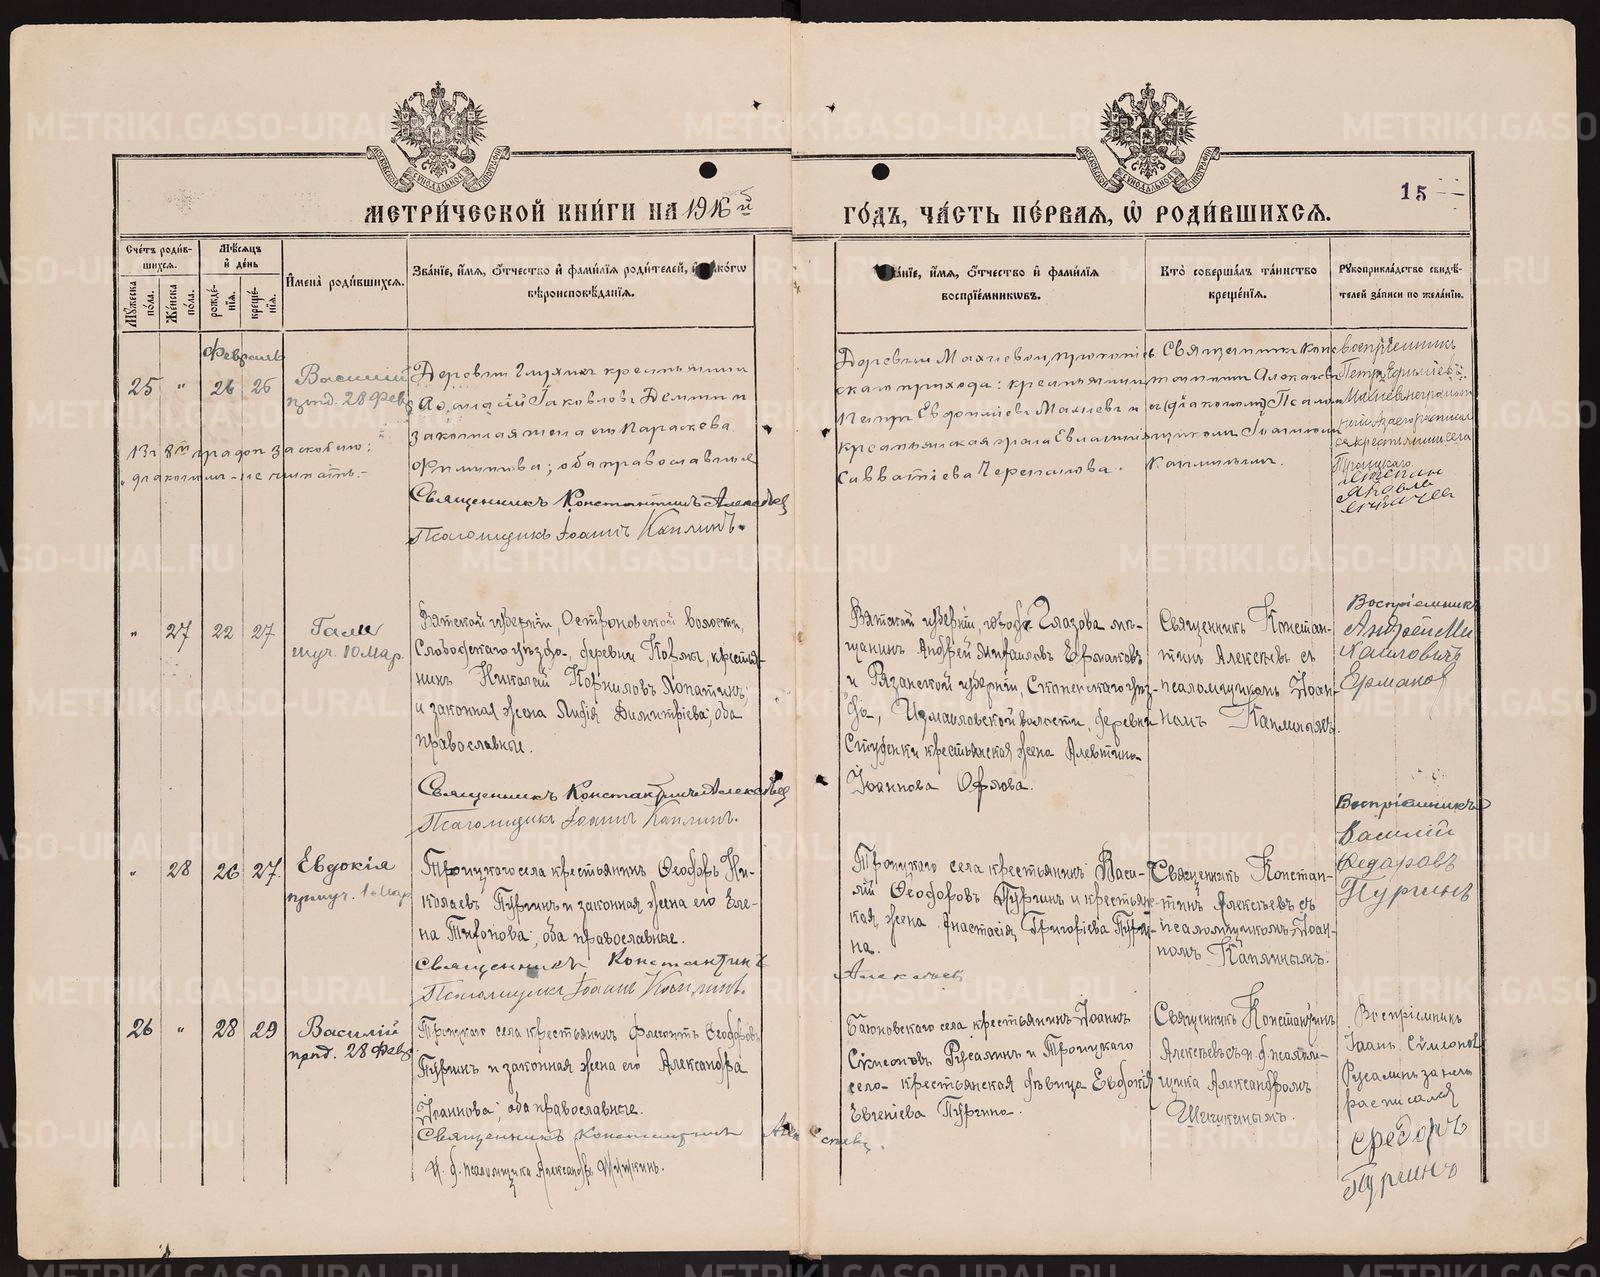 МЕТРИ́ЧЕСКОЙ КНИ́ГИ НА 1916 й
ГО́ДЪ, ЧА́СТЬ ПЕ́РВАЯ, Ѡ РОДИ́ВШИХСЯ.
15
Сче́тъ роди́в-
шихся.
Мѣ́сяцъ
и҆ де́нь
Му́жеска
по́ла.
Же́нска
по́ла.
рожде́-
нія.
креще́-
нія.
И҆мена̀ роди́вшихся.
Зва́ніе, и҆́мя, ѻ҆́тчество и҆ фами́лія роди́телей, и҆ како́гѡ
вѣроисповѣ́данія.
Зва́ніе, и҆́мя, ѻ҆́тчество и҆ фами́лія
воспрїе́мникѡвъ.
Кто̀ соверша́лъ та́инство
креще́нія.
Рукоприкла́дство свидѣ́-
телей за́писи по жела́нію.
Февраль
25 " 26 26
Василій
прпд. 28 Фев.
Деревни Глухих крестьянинъ
Іаковлевъ
законная жена его Параскева
Филиппова; оба православные
Священникъ Константинъ Алексѣевъ
Псаломщикъ Іоаннъ Каплинъ.
въ 8й графѣ за скобкою:
діакономъ - не читать. -
Деревни Махневой,
скаго прихода: крестьянинъ
Петръ Евфиміевъ Махневъ и
крестьянская жена
Савватіева Черепанова.
Священникъ Конс
тантинъ Алексѣевъ
съ (діакономъ) Псалом
щикомъ Іоанномъ
Каплинымъ.
Воспріемникъ
Петръ Ефимьевъ
Махневъ неграмот
ный
крестьянинъ села
Троицкаго
" 27 22 27
муч. 10 Мар.
Вятской губерніи, волости,
Слободскаго уѣзда, деревни крестья-
нинъ Николай Корниловъ Лопатинъ
и законная жена Лидія Димитріева; оба
православные.
Священникъ Константинъ Алексѣевъ
Псаломщикъ Іоаннъ Каплинъ.
Вятской губерніи, города Глазова мѣ-
щанинъ Андрей Михаиловъ Ермаковъ
и Рязанской губерніи, Скопинскаго уѣз-
да, Измаиловской волости, деревни
Студенки крестьянская жена Алевтина
Іоаннова Орлова.
Священникъ Констан-
тинъ Алексѣевъ съ
псаломщикомъ Іоан-
номъ Каплинымъ.
Воспріемникъ
Андрей Ми
хаиловичъ
Ермаковъ
" 28 26 27
Евдокія
прпмуч. 1 Мар.
Троицкаго села крестьянинъ Ѳеодоръ Ни-
колаевъ Пургинъ и законная жена его Еле-
на Тихонова; оба православные.
Священникъ Константинъ
Алексѣевъ
Псаломщикъ Іоаннъ Каплинъ.
Троицкаго села крестьянинъ Васи-
лій Ѳеодоровъ Пургинъ и крестьян-
ская жена Анастасія Григоріева Пурги-
на.
Священникъ Констан-
тинъ Алексѣевъ съ
псаломщикомъ Іоан-
номъ Каплинымъ.
Воспріемникъ
Василій
Федаровъ
Пургинъ
26 " 28 29
Василій
прпд. 28 Фев.
Троицкаго села крестьянинъ Ѳеодоровъ
Пургинъ и законная жена его Александра
Іоаннова; оба православные.
Священникъ Константинъ Алексѣевъ.
И. д. псаломщика Александръ Шишкинъ.
села крестьянинъ Іоаннъ
Сѵмеоновъ Русалинъ и Троицкаго
села крестьянская дѣвица Евдокія
Евгеніева Пургина.
Священникъ Константинъ
Алексѣевъ съ и. д. псалом-
щика Александромъ
Шишкинымъ.
Воспріемникъ
Іоанъ Симеоновъ
Русалинъ за него
расписался
Федоръ
Пургинъ
METRIKI.GASO-URAL.RU